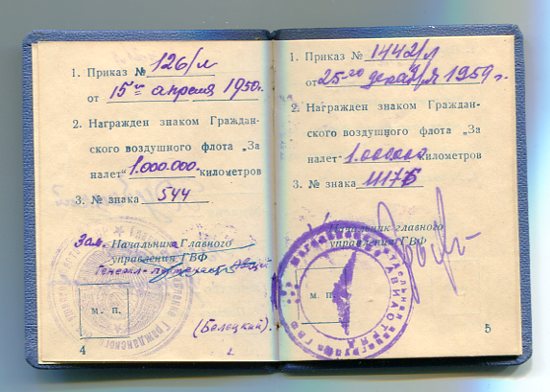 1. Приказ № 126/л
от 15го апреля 1950г.
2. Награжден знаком Граждан-
ского воздушного флота „За
налет“ 1.000.000. километров
3. № знака 544
Зам. Начальника Главного
управления ГВФ
Генерал-лейтенант авиации
м. п.
(Белецкий)
4
1. Приказ № 1442/л
от 25-го декабря 1959 г.
2. Награжден знаком Граждан-
ского воздушного флота „За
налет“ 1.000000 километров
3. № знака 11176
Начальник главного
управления ГВФ
м. п.
5